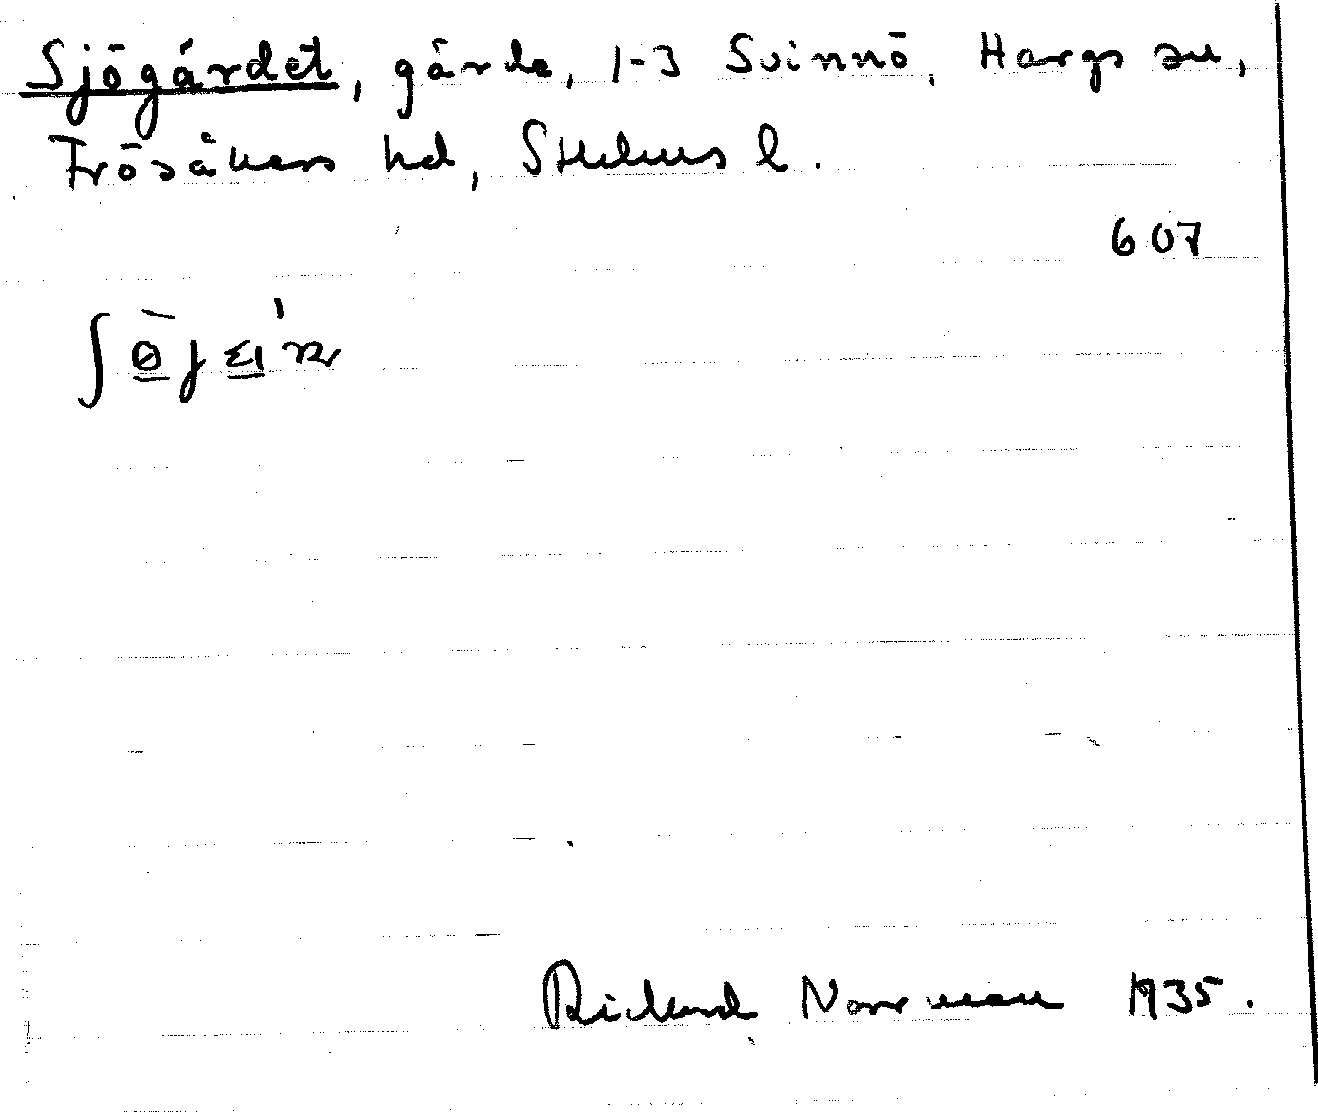 Sjögärdet, gärde, 1-3 Svinnö, Hargs sn,
Frösåkers hd, Sthlms l.
607
Richard Norrman 1935.